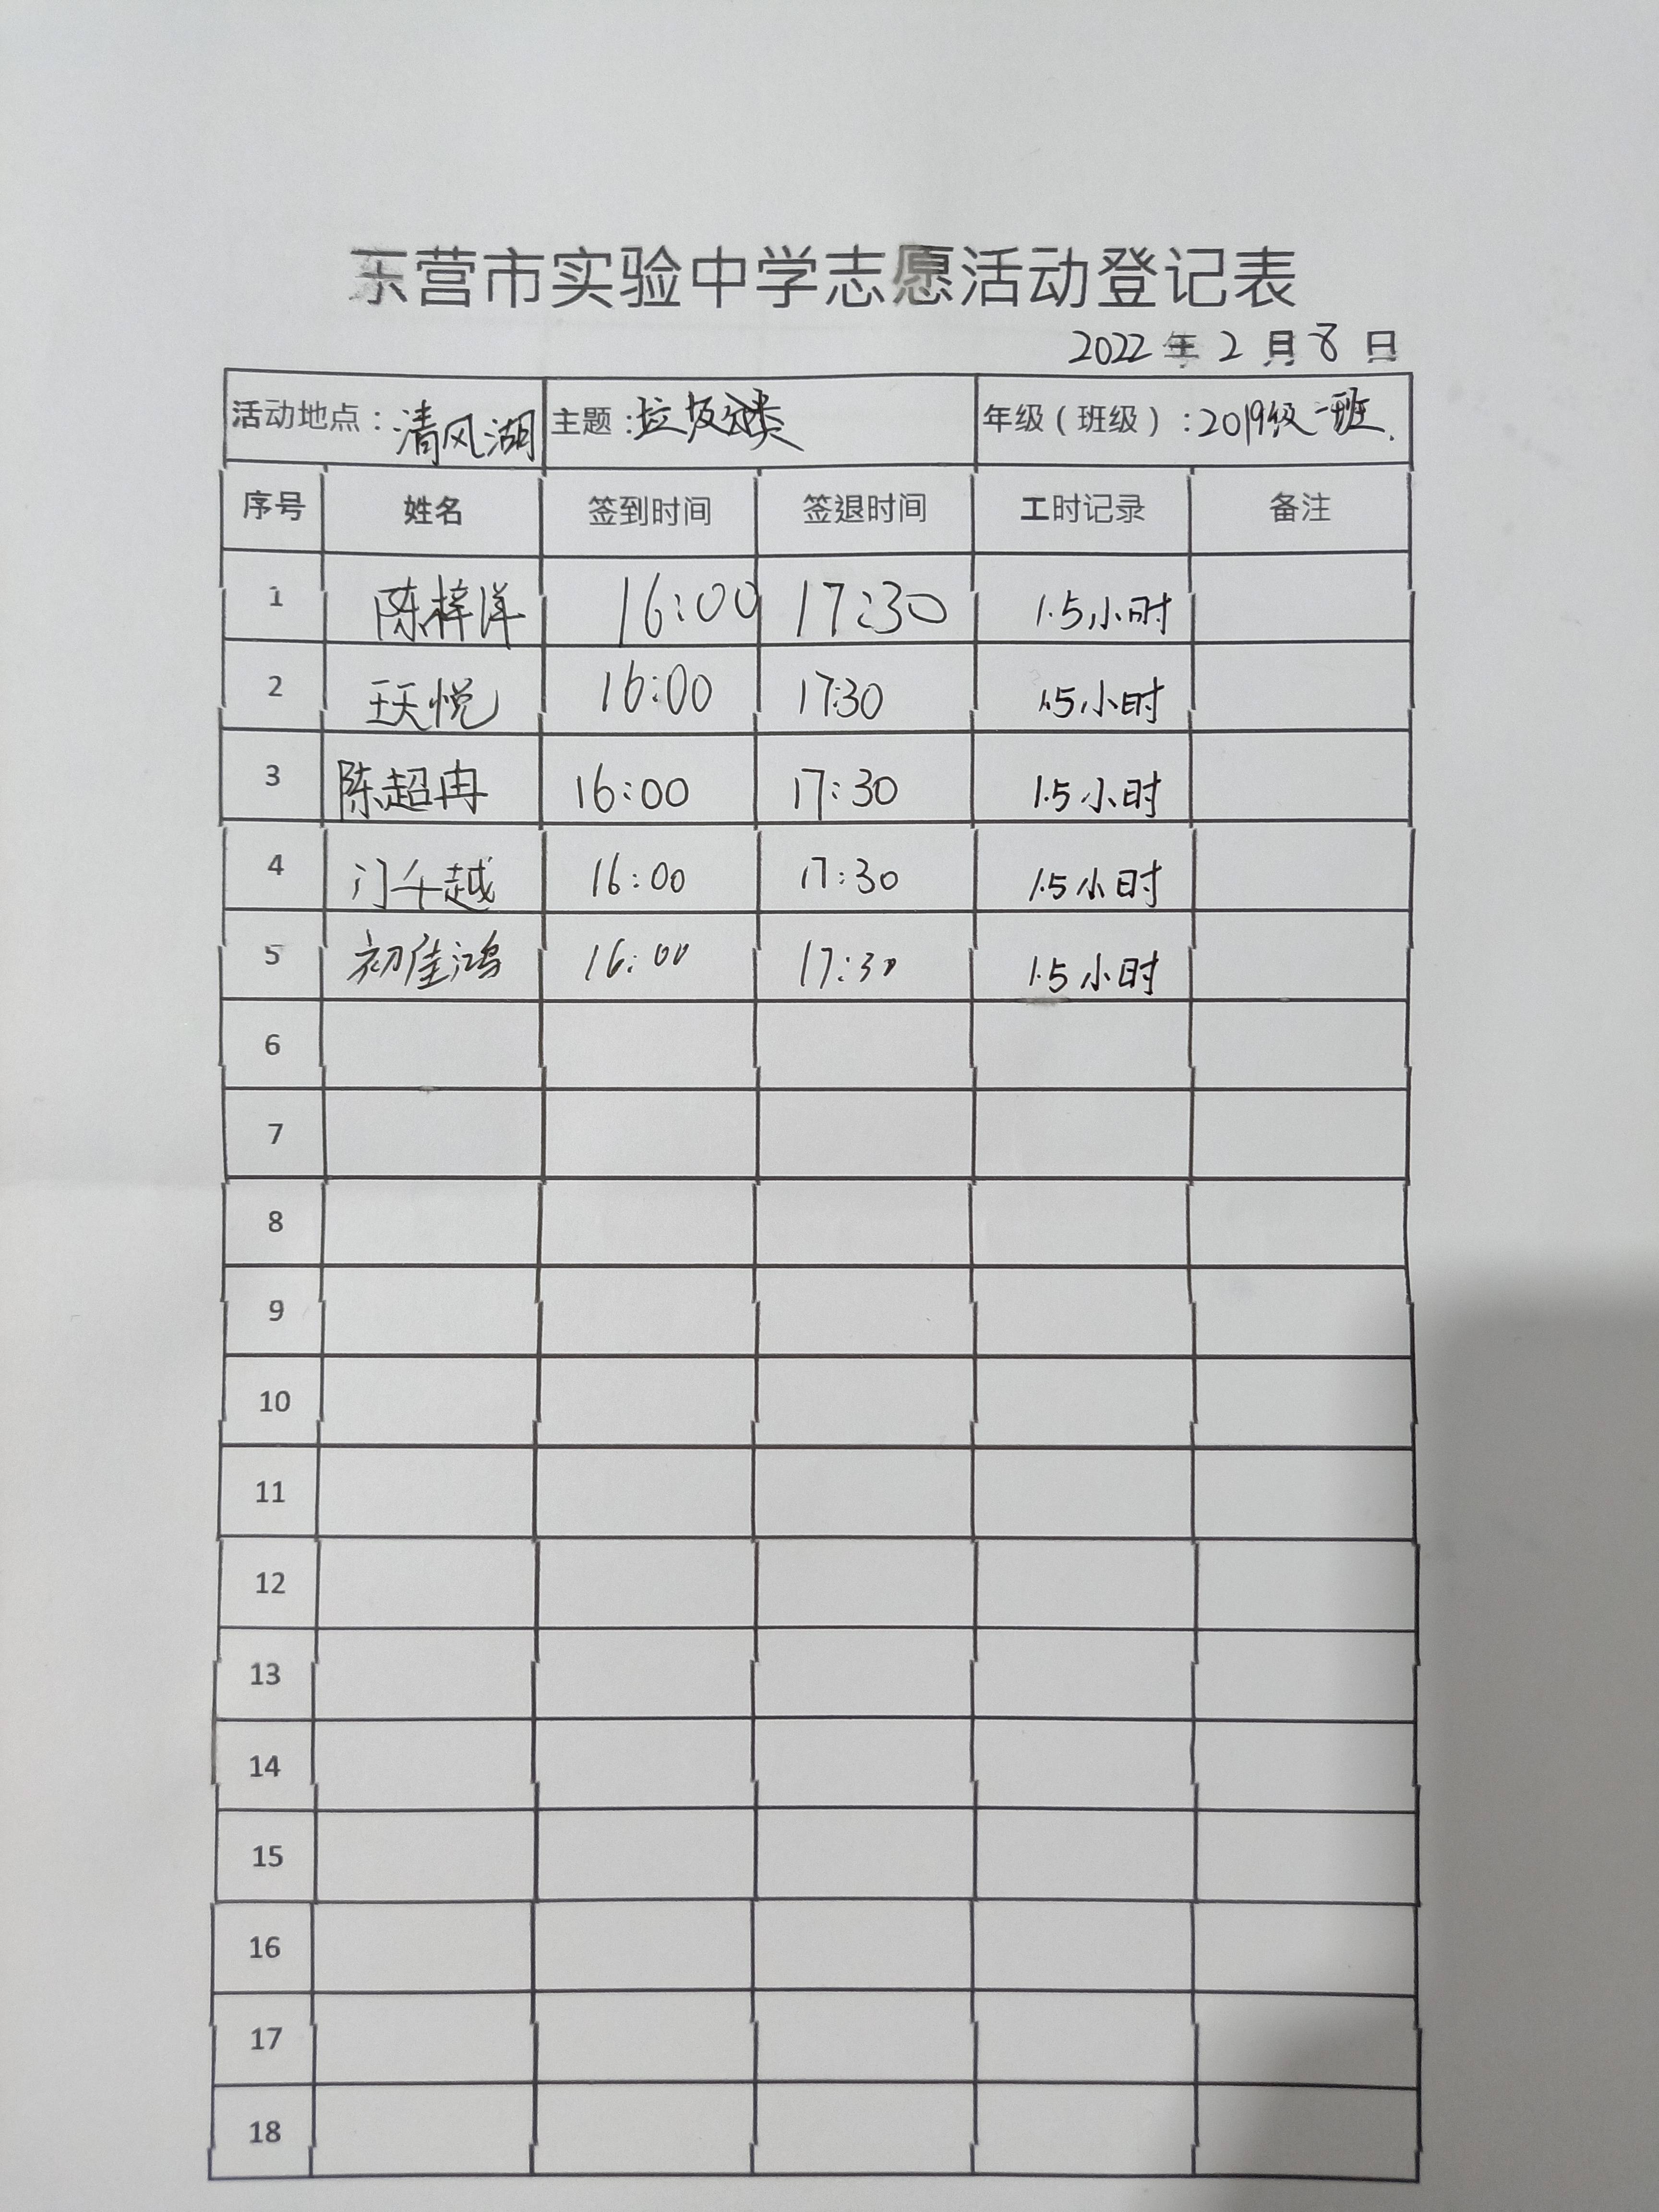 东营市实验中学志愿活动登记表
2022年2月8日
活动地点：清风湖 主题：垃圾分类 年级（班级）：2019级一班.
序号 姓名 签到时间 签退时间 工时记录 备注
1 陈梓洋 16:00 17:30 1.5小时
2 王天悦 16:00 17:30 1.5小时
3 陈超冉 16:00 17:30 1.5小时
4 门千越 16:00 17:30 1.5小时
5 初佳鸿 16:00 17:30 1.5小时
6
7
8
9
10
11
12
13
14
15
16
17
18